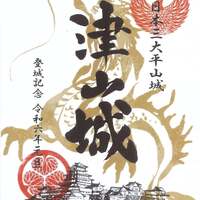 日本三大平山城
津山城
登城記念 令和六年三月